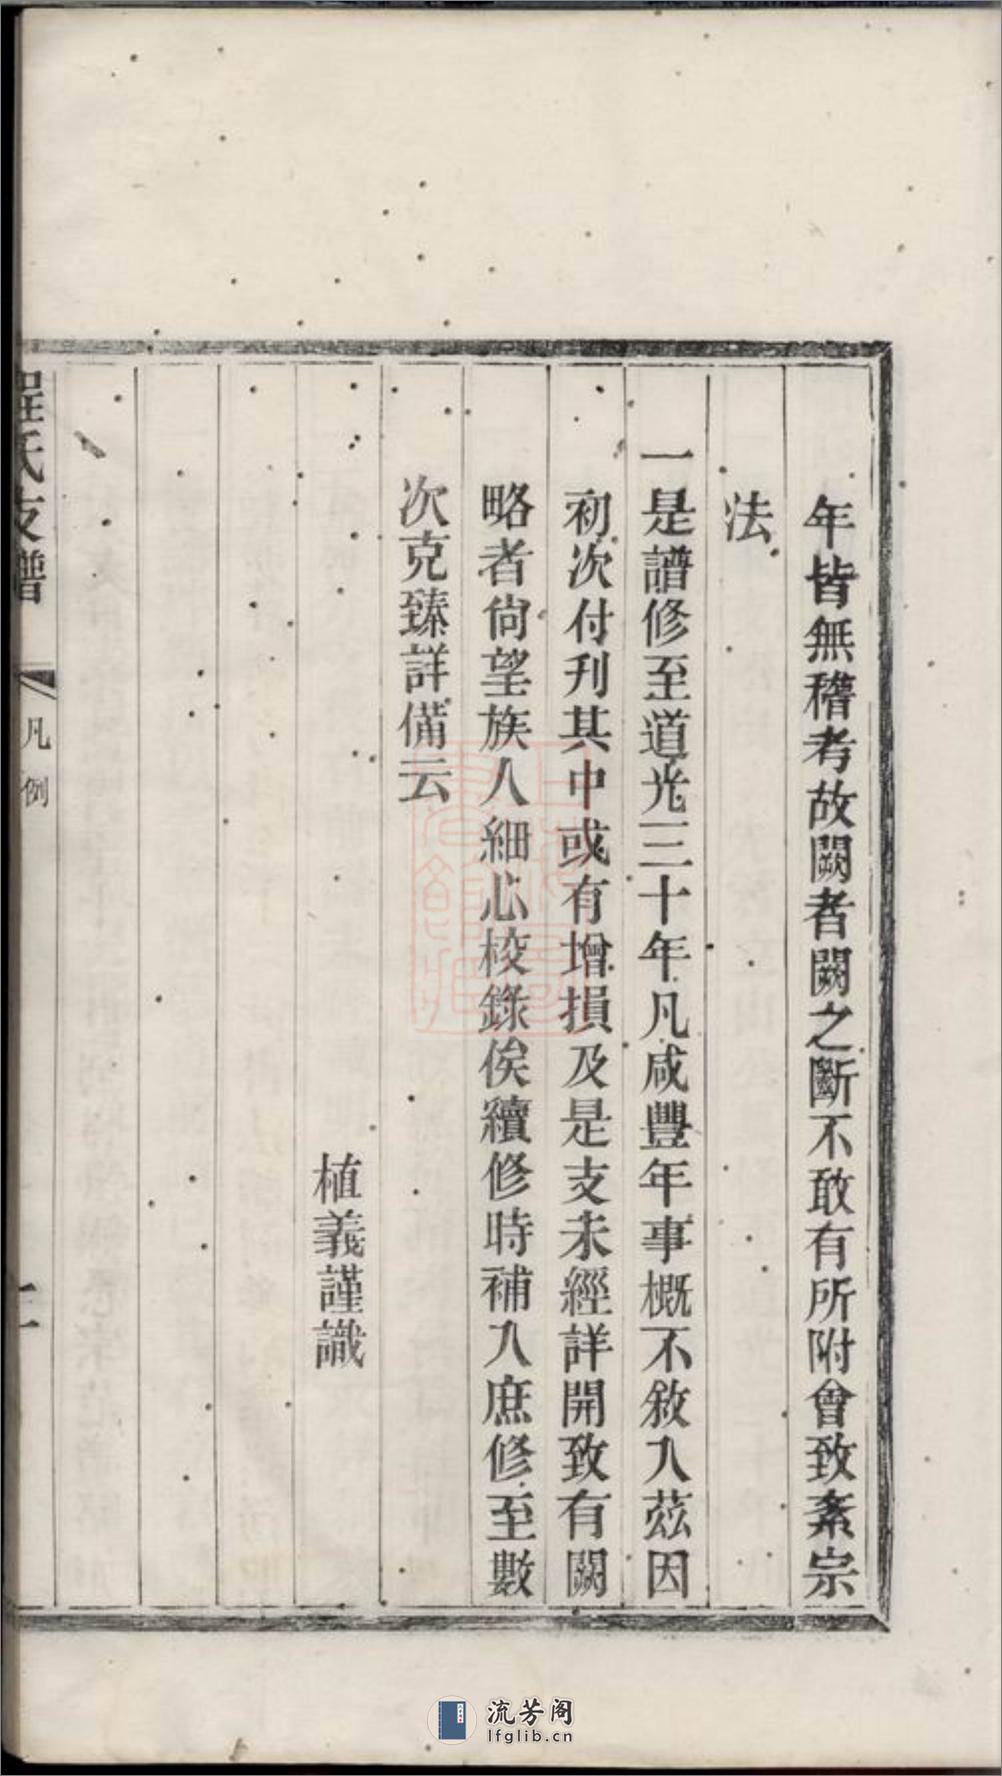 年皆無稽考故闕者闕之斷不敢有所附會致紊宗
法
一是譜修至道光三十年凡咸豐年事概不敘入茲因
初次付刊其中或有增損及是支未經詳開致有闕
略者尙望族人細心校錄俟續修時補入庶修至數
次克臻詳備云
植義謹識
程氏支譜
凡例
二
流芳阁
lfglib.cn